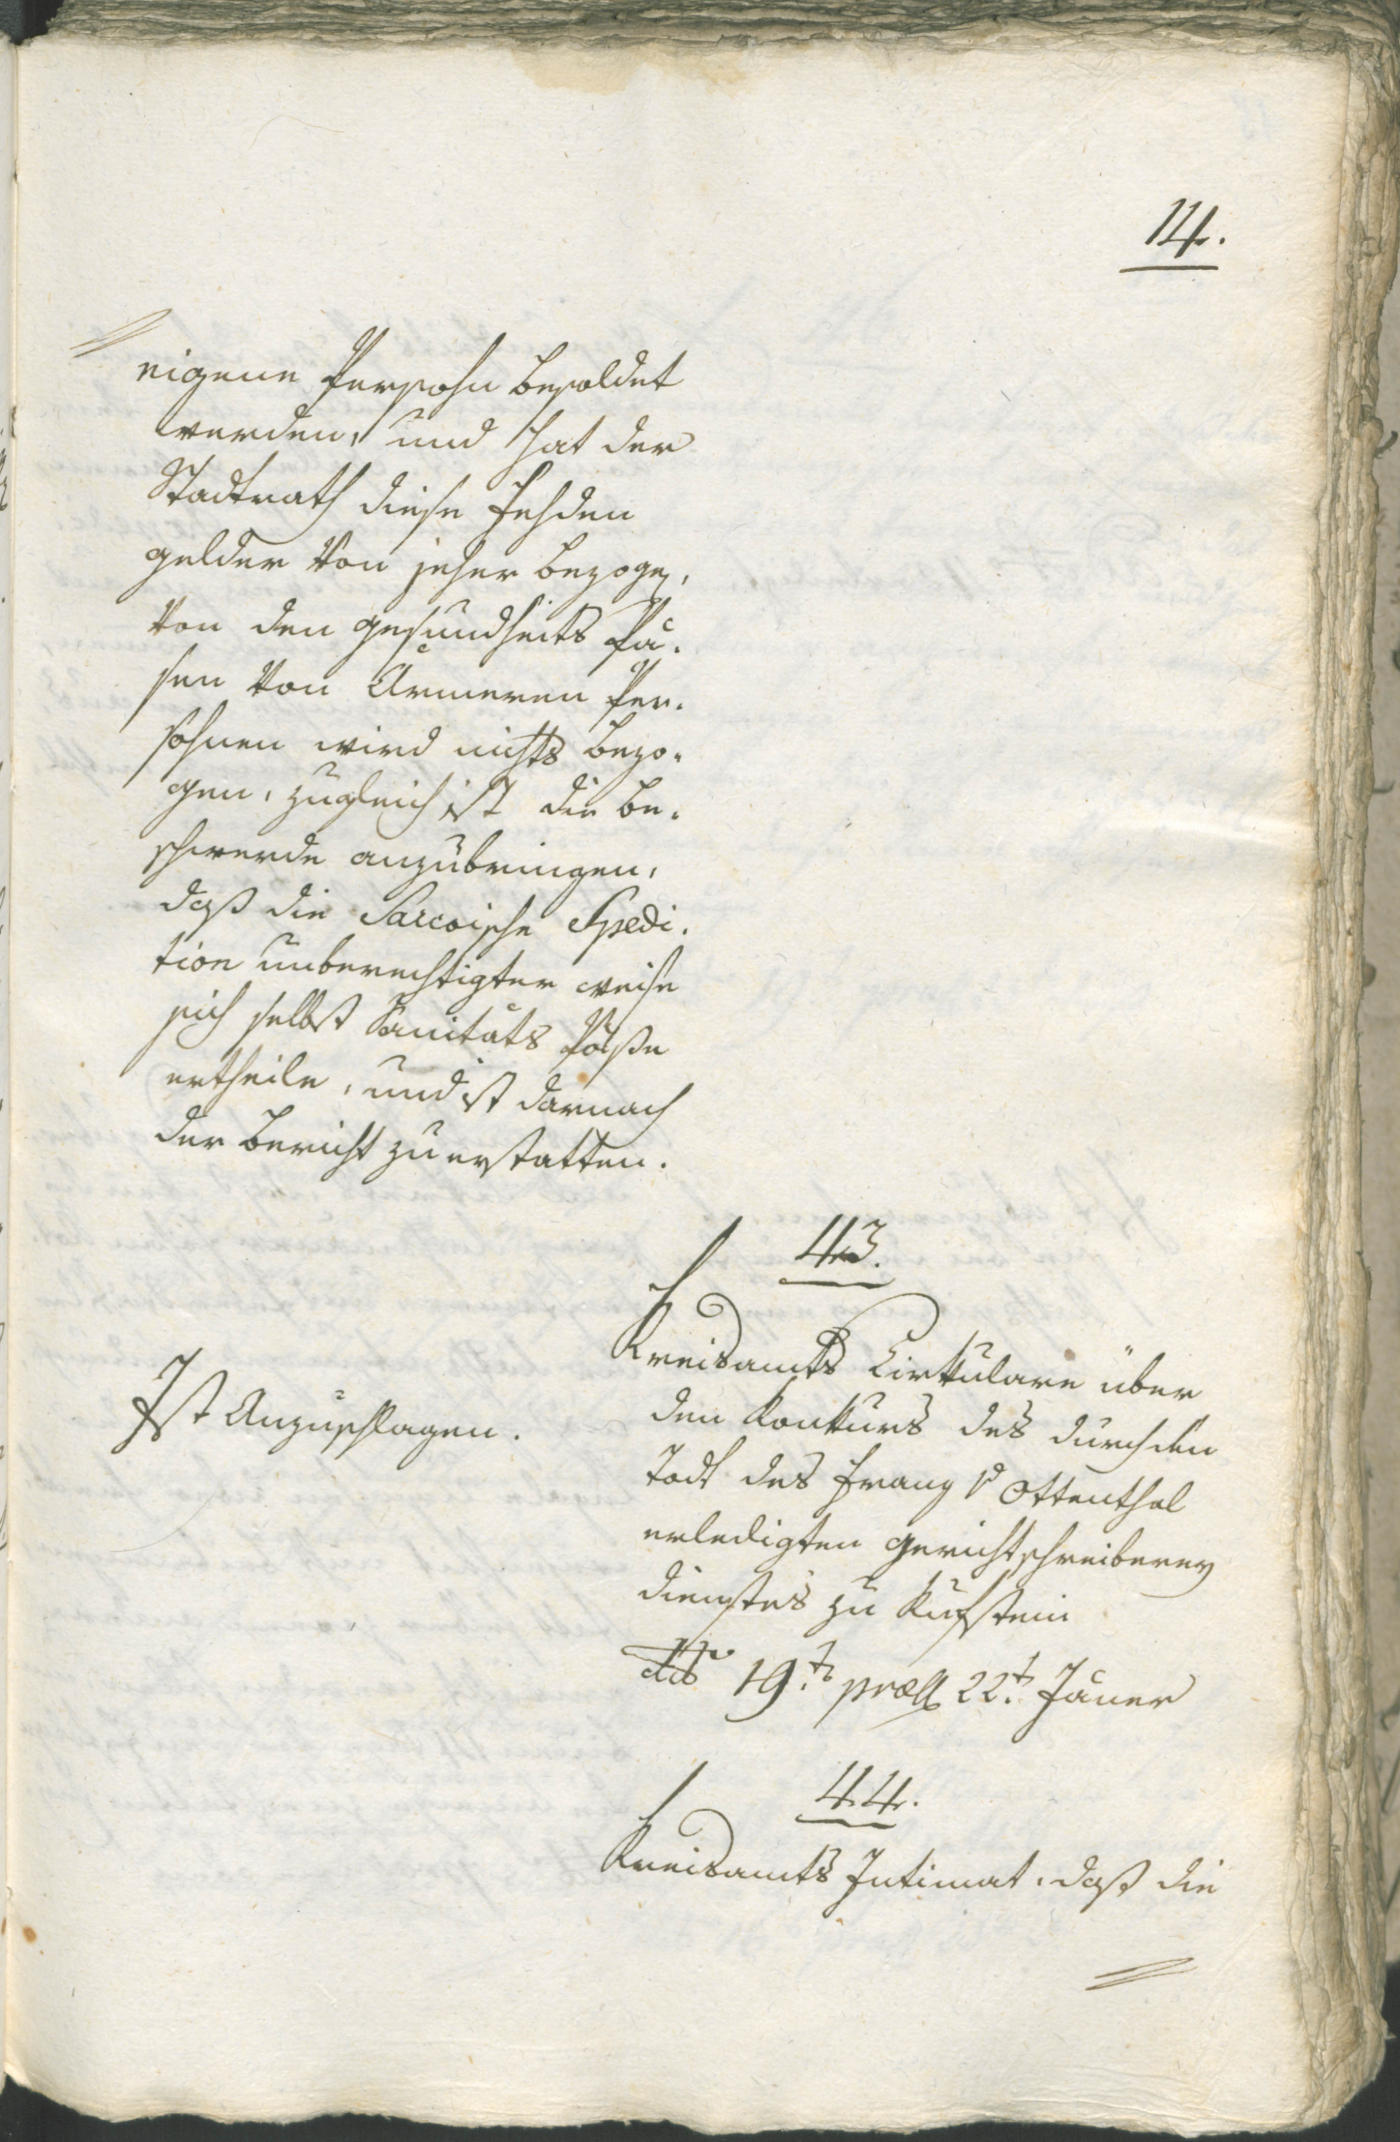 14.
eigene Persohn besoldet
werden, und hat der
Stadtrath diese Fehden
gelder von jeher bezogen,
von den gesundheits Pä-
sen von Ärmeren Per-
sohnen wird nichts bezo-
gen, zugleich ist die Be-
schwerde anzubringen,
daß die Sarcoische Spedi-
tion unberechtigter weise
sich selbst Sanitäts Päße
ertheile, und ist darnach
der Bericht zu erstatten.
43.
Kreisamts Cirkulare über
den Konkurs des durch den
Todt des Franz v Ottenthal
erledigten gerichtschreiberey
dienstes zu Kufstein
dto 19t. præs 22t. Jäner
Ist Anzuschlagen.
44.
Kreisamts Intimat, daß die